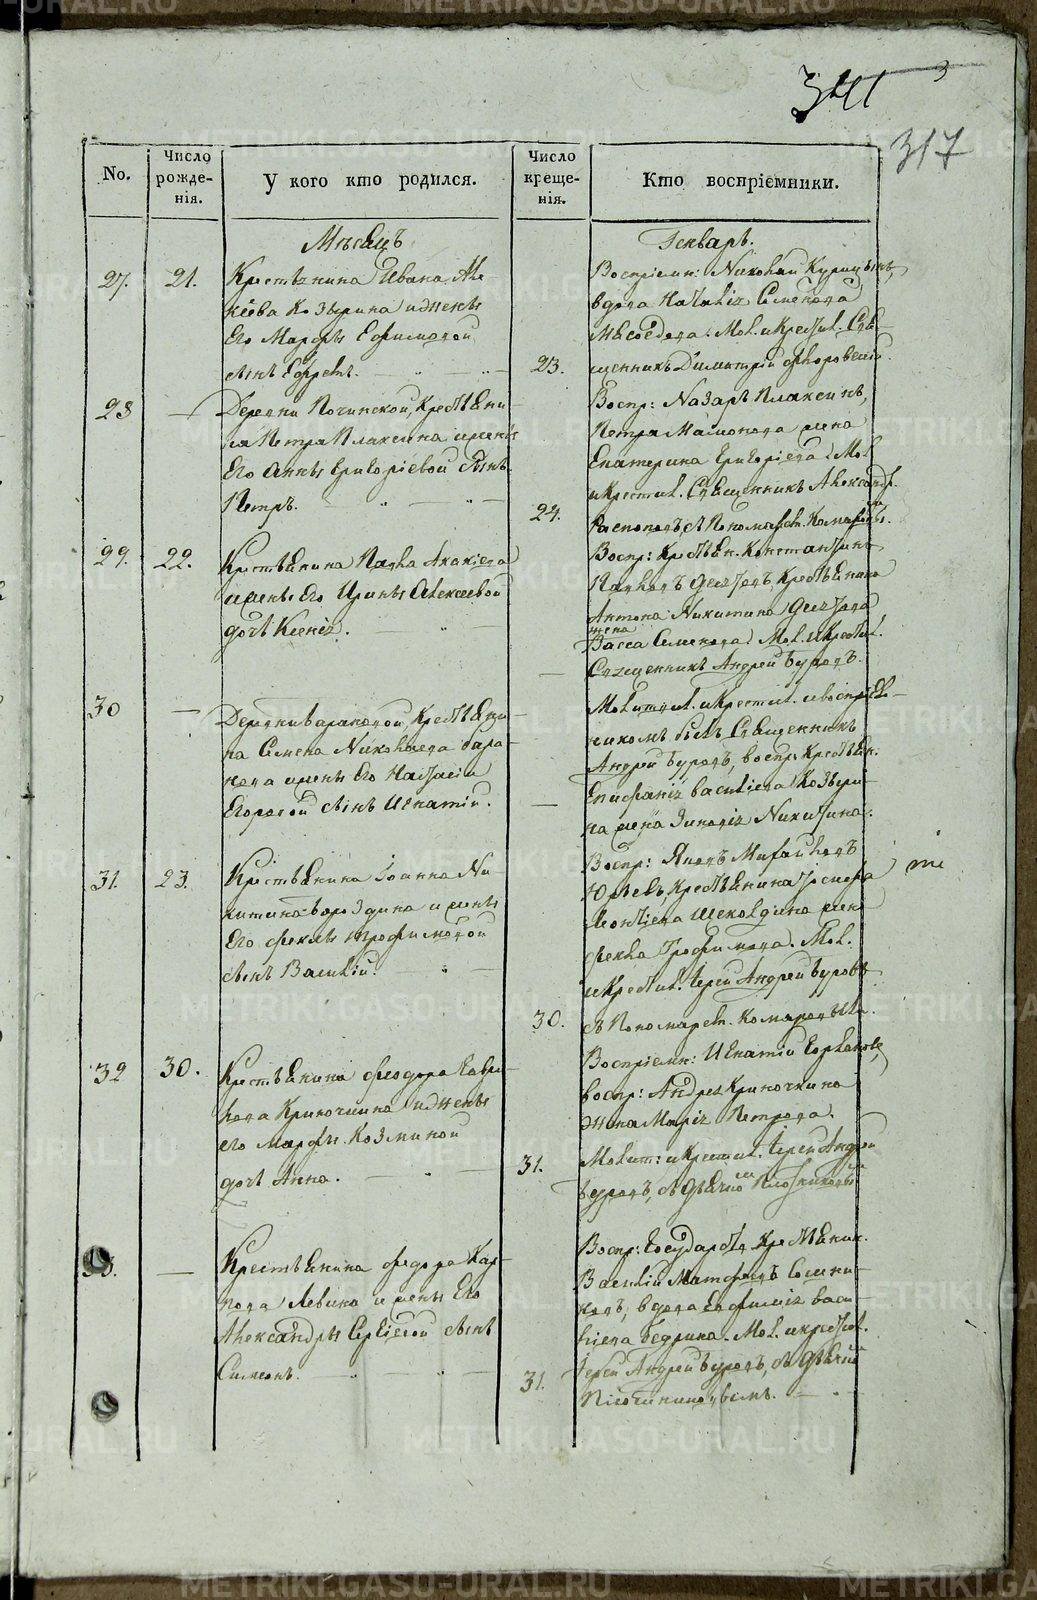 341 3
317
No.
Число рожде- нія.
У кого кто родился.
Число креще- нія.
Кто воспріемники.
Мѣсяцъ
Генварь.
27. 21.
Крестьянина Ивана Але-
ксѣева Козырина и жены
Его Марфы Ефимовой
сынъ Ефремъ.
23.
Воспріемн: Николай Курицынъ,
вдова Наталія Семенова
Мясоѣдова. Мол. и Крестил. Свя-
щенникъ Димитрій Флоровскій
28 —
Деревни Починской, Крестьяни-
на Петра Плаксина и жены
Его Анны Григоріевой сынъ
Петръ.
24.
Воспр: Назаръ Плаксинъ,
Петра Мамонова жена
Екатерина Григоріева. Мол.
и Крестил. Священникъ Александръ
Распоповъ съ Пономарем. Комаровы.
29. 22.
Крестьянина Павла Акакіева
и жены Его Ирины Алексеевой
дочь Ксенія.
—
Воспр: Крестьян. Константинъ
Павловъ, Крестьянина
Антона Никитина
жена
Васса Семенова. Мол. и Крестил.
Священникъ Андрей Буровъ.
30 —
Деревни Барановой Крестьяни-
на Семена Николаева Бара-
нова и жены Его Настасіи
Егоровой сынъ Игнатій.
—
Молитвил. и Крестил. и воспріем-
никомъ былъ Священникъ
Андрей Буровъ, воспр: Крестьян.
Епифанія Васильева Козыри-
на жена Зиновія Никитина.
31. 23.
Крестьянина Іоанна Ни-
китина Бороздина и жены
Его Феклы Трофимовой
сынъ Василій.
30.
Воспр: Яковъ Михайловъ
Юрьевъ, Крестьянина
Леонтіева Шеколдина жена
Фекла Трофимова. Мол.
и Крестил. Іерей Андрей Буровъ
съ Пономарем. Комаровым.
32 30.
Крестьянина Феодора Гаври-
лова Кривочкина и жены
его Марфы Козминой
дочь Анна.
31.
Воспріемн: Игнатій
воспр: Андрея Кривочкина
жена Марія Петрова.
Молит: и Крестил. Іерей Андрей
Буровъ, съ Дьячко
33. —
Крестьянина Федора Кар-
пова Левина и жены Его
Александры Сергіевой сынъ
Симеонъ.
31.
Воспр: Государств. Крестьянин.
Василій Матфеевъ
вдова Евфимія Васи-
ліева Бедрина. Мол. и крестил.
Іерей Андрей Буровъ, съ Дьячк.
METRIKI.GASO-URAL.RU